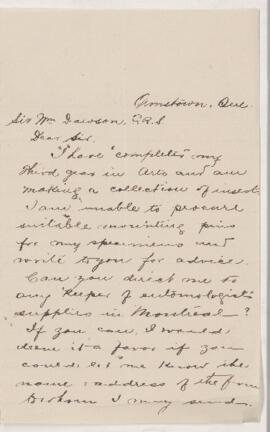 Ormstown, Que
Sir Wm Dawson, F.R.S
Dear Sir.
I have completed my
third year in Arts and am
making a collection of insects
I am unable to procure
suitable mounting pins
for my specimens and
write to you for advice.
Can you direct me to
any keeper of entomologists
supplies in Montreal?
If you can, I would
deem it a favor if you
could let me know the
name & address of the firm
to whom I may send